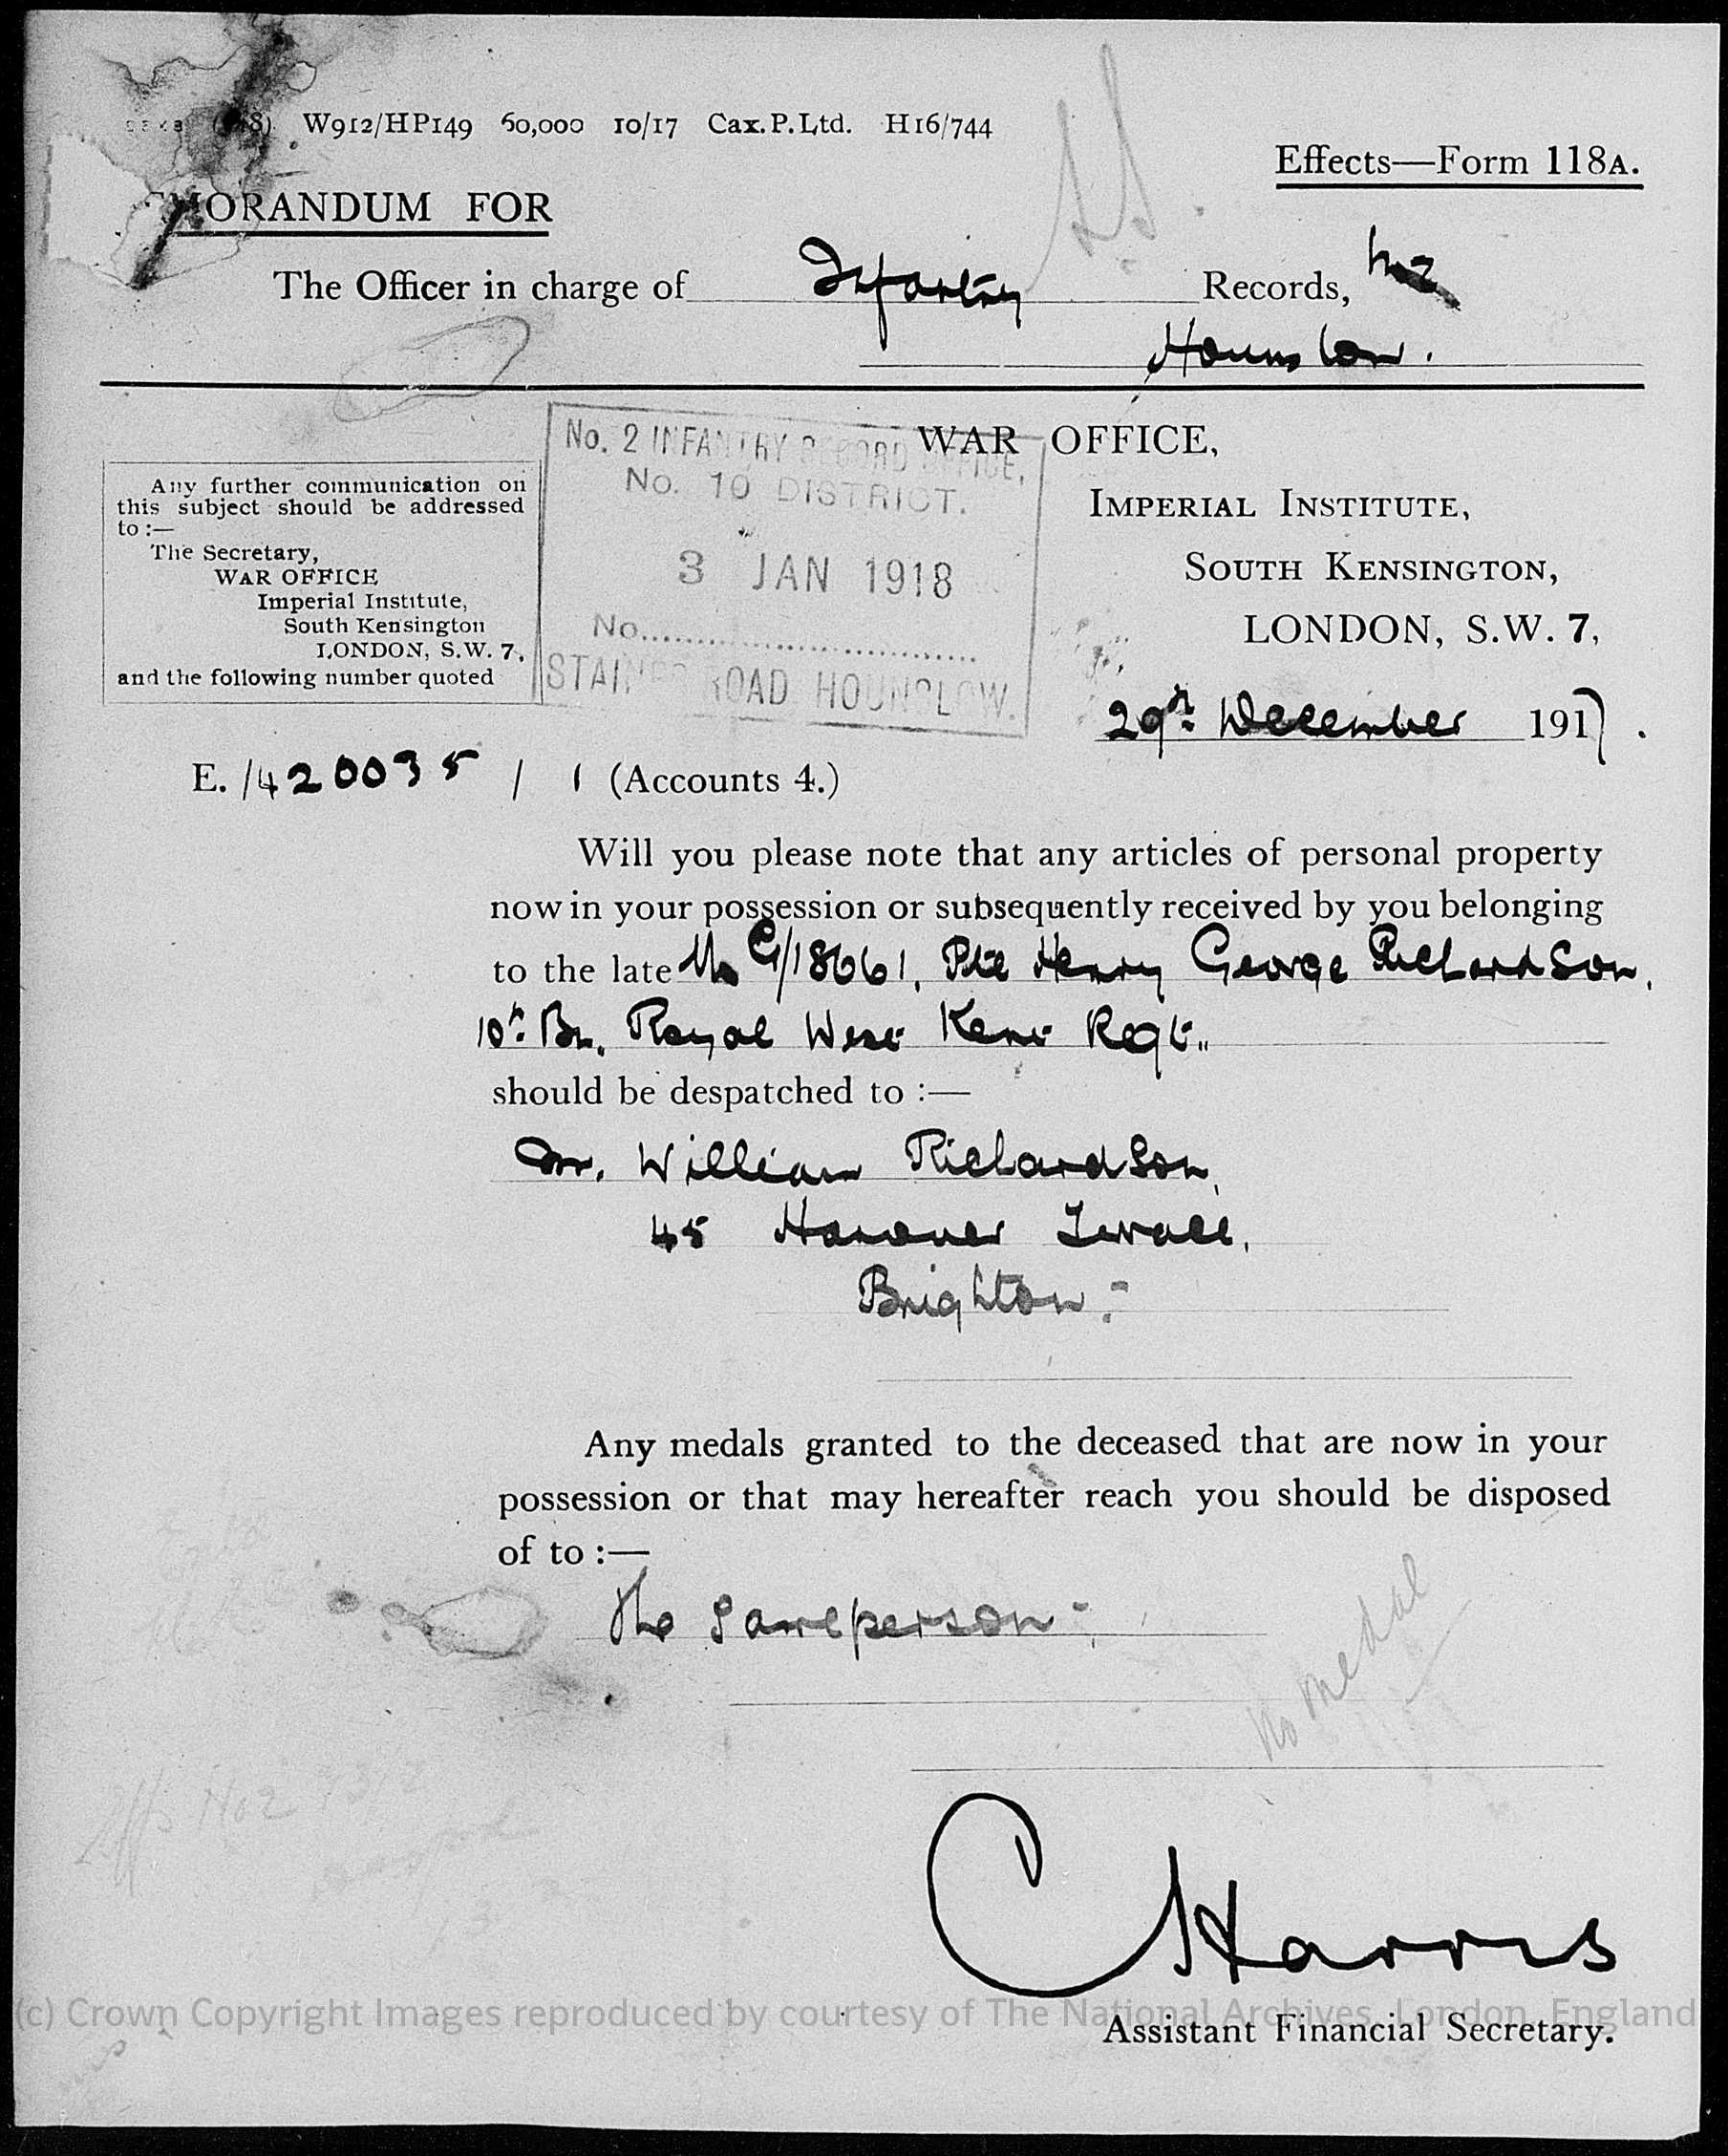 W912/HP149 50,000 10/17 Cax.P.Ltd. H16/744
Effects—Form 118A.
MORANDUM FOR
The Officer in charge of Infantry Records, No 2
Hounslow.
WAR OFFICE,
IMPERIAL INSTITUTE,
SOUTH KENSINGTON,
LONDON, S.W. 7,
Any further communication on
this subject should be addressed
to :—
The Secretary,
WAR OFFICE
Imperial Institute,
South Kensington
LONDON, S.W. 7,
and the following number quoted
No. 2 INFANTRY RECORD OFFICE,
No. 10 DISTRICT.
3 JAN 1918
No.
STAINES ROAD HOUNSLOW.
29th December 1917.
E. /420035 / 1 (Accounts 4.)
Will you please note that any articles of personal property
now in your possession or subsequently received by you belonging
to the late No G/18661, Pte Henry George Richardson,
10th Bn. Royal West Kent Regt.
should be despatched to :—
Mr. William Richardson,
45 Hanover Terrace,
Brighton.
Any medals granted to the deceased that are now in your
possession or that may hereafter reach you should be disposed
of to :—
The same person.
No medal
C Harris
Assistant Financial Secretary.
(c) Crown Copyright Images reproduced by courtesy of The National Archives, London, England